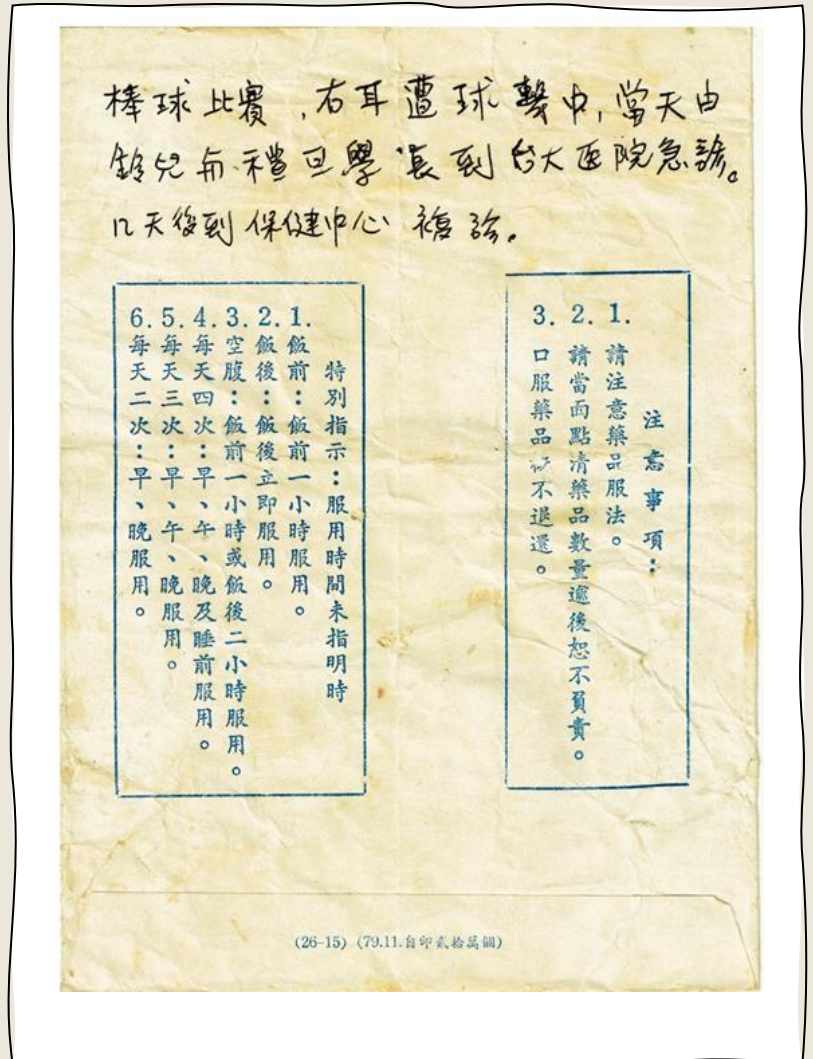 棒球比賽,右耳遭球擊中,當天由
學長到台大医院急診。
12天後到保健中心 複診。
注意事項：
1. 請注意藥品服法。
2. 請當面點清藥品數量逾後恕不負責。
3. 口服藥品不退還。
特別指示：服用時間未指明時
1. 飯前：飯前一小時服用。
2. 飯後：飯後立即服用。
3. 空腹：飯前一小時或飯後二小時服用。
4. 每天四次：早、午、晚及睡前服用。
5. 每天三次：早、午、晚服用。
6. 每天二次：早、晚服用。
(26-15) (79.11.自印貳拾萬個)